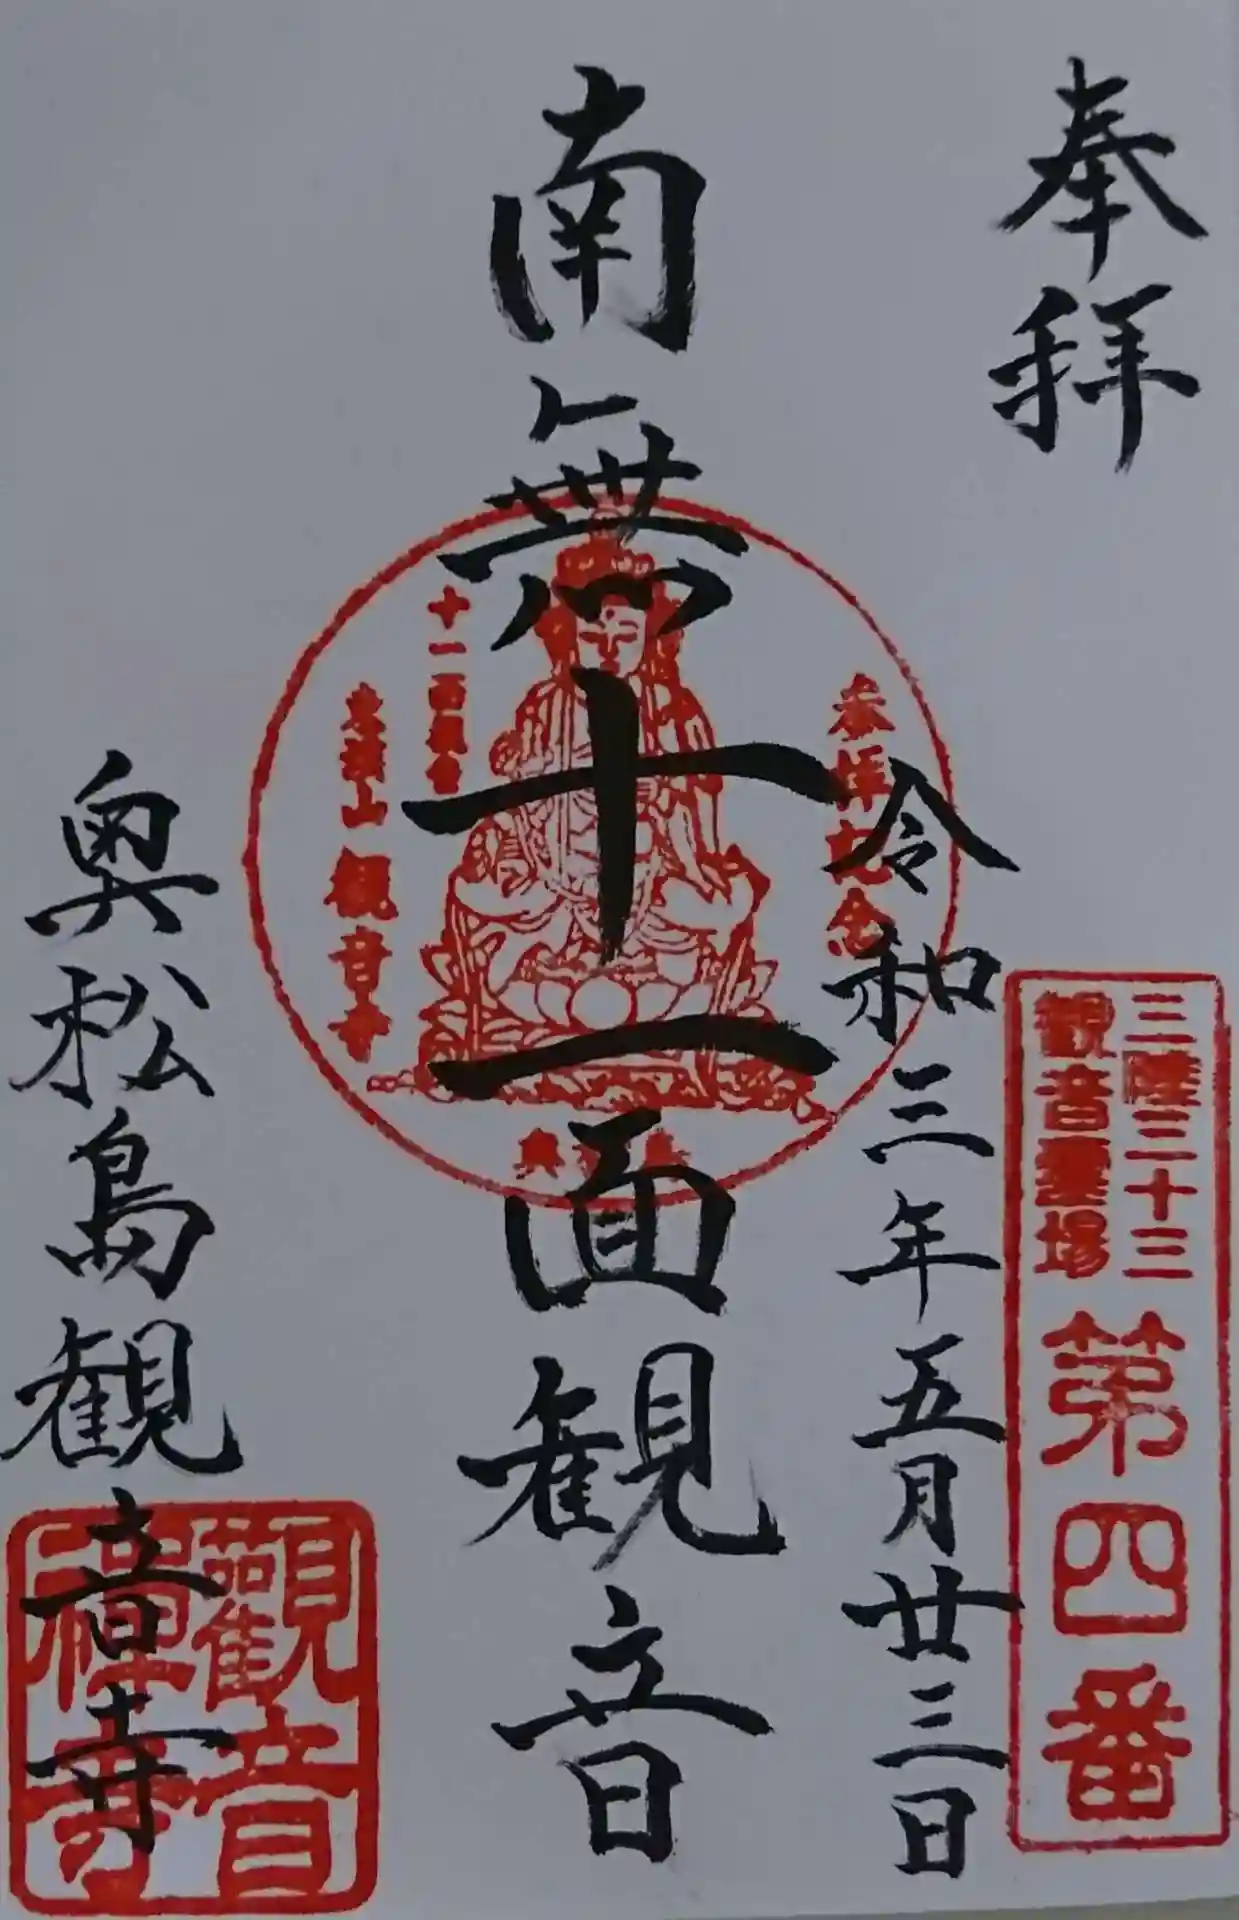 奉拝
三陸三十三
観音霊場
第四番
令和三年五月廿三日
参拝記念
南無十一面観音
十一面観音
山観音寺
奥松島
奥松島観音寺
観音
禅寺